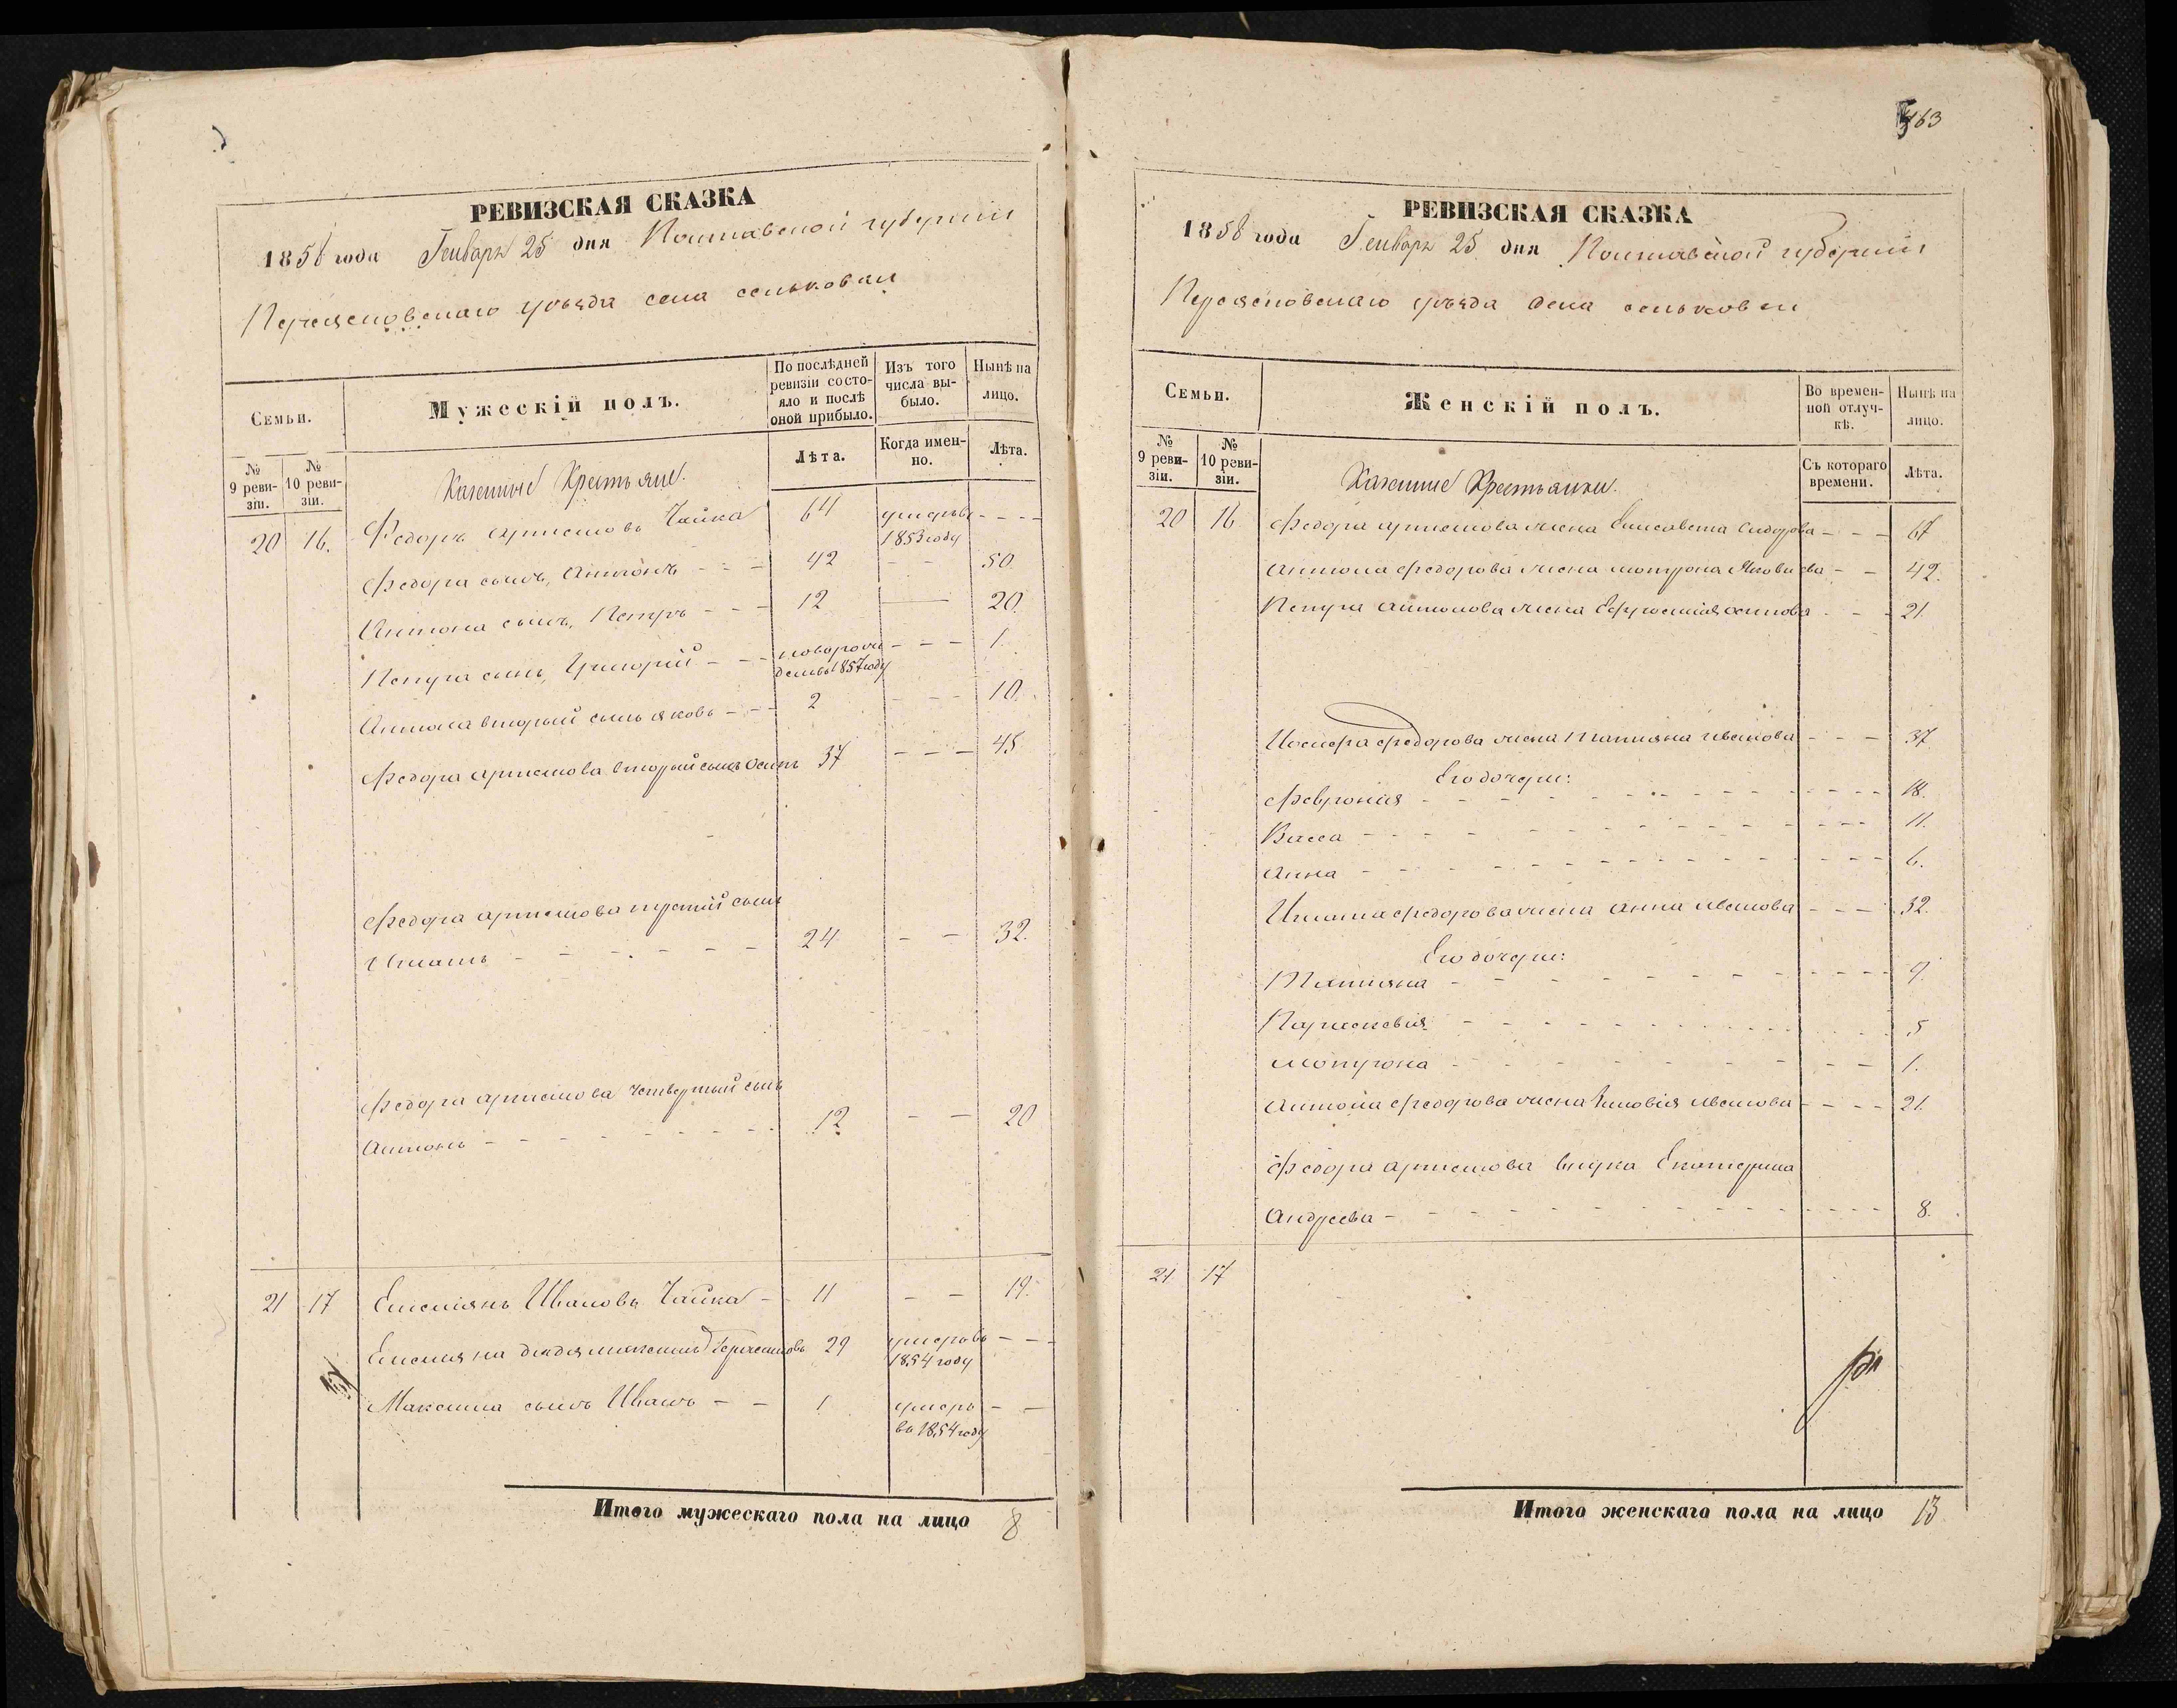 РЕВИЗСКАЯ СКАЗКА
1858 года Генваря 25 дня Полтавской губернии
Переясловскаго уѣзда села сеньковки
Семьи.
Мужескій полъ.
По послѣдней ревизіи состояло и послѣ оной прибыло.
Изъ того числа выбыло.
Нынѣ на лицо.
№ 9 ревизіи.
№ 10 ревизіи.
Лѣта.
Когда именно.
Лѣта.
Казенные Крестьяне.
20 16. Федоръ артемовъ Чайка 64 умеръ въ 1853 году
Федора сынъ, Антонъ 42 50.
Антона сынъ, Петръ 12 20.
Петра сынъ, Григорій новорожденъ 1857 году 1.
Антона вторый сынъ яковъ 2 10.
Федора артемова вторый сынъ Осипъ 37 45
Федора артемова третій сынъ
Игнатъ 24 32.
Федора артемова четвертый сынъ
Антонъ 12 20
21 17 Емелiянъ Ивановъ Чайка 11 19.
Емеляна дядя максимъ 29 умеръ въ 1854 году
Максима сынъ Иванъ 1 умеръ въ 1854 году
Итого мужескаго пола на лицо 8
463
РЕВИЗСКАЯ СКАЗКА
1858 года Генваря 25 дня Полтавской губернии
Переясловскаго уѣзда села сеньковки
Семьи.
Женскій полъ.
Во временной отлучкѣ.
Нынѣ на лицо.
№ 9 ревизіи.
№ 10 ревизіи.
Съ котораго времени.
Лѣта.
Казенные Крестьянки.
20 16 Федора артемова жена Елисавета Сидорова 67
Антона Федорова жена мотрона Яковлева 42.
Петра антонова жена Ефросинія осипова 21.
Иосифа федорова жена Татияна иванова 37
Его дочери:
Феврония 18.
Васса 11.
Анна 6.
Игната федорова жена анна иванова 32.
Его дочери:
Татияна 9.
Параскевія 5
мотрона 1.
Антона Федорова жена Зиновія иванова 21.
Федора артемова внука Екатерина
Андреева 8.
21 17
Итого женскаго пола на лицо 13